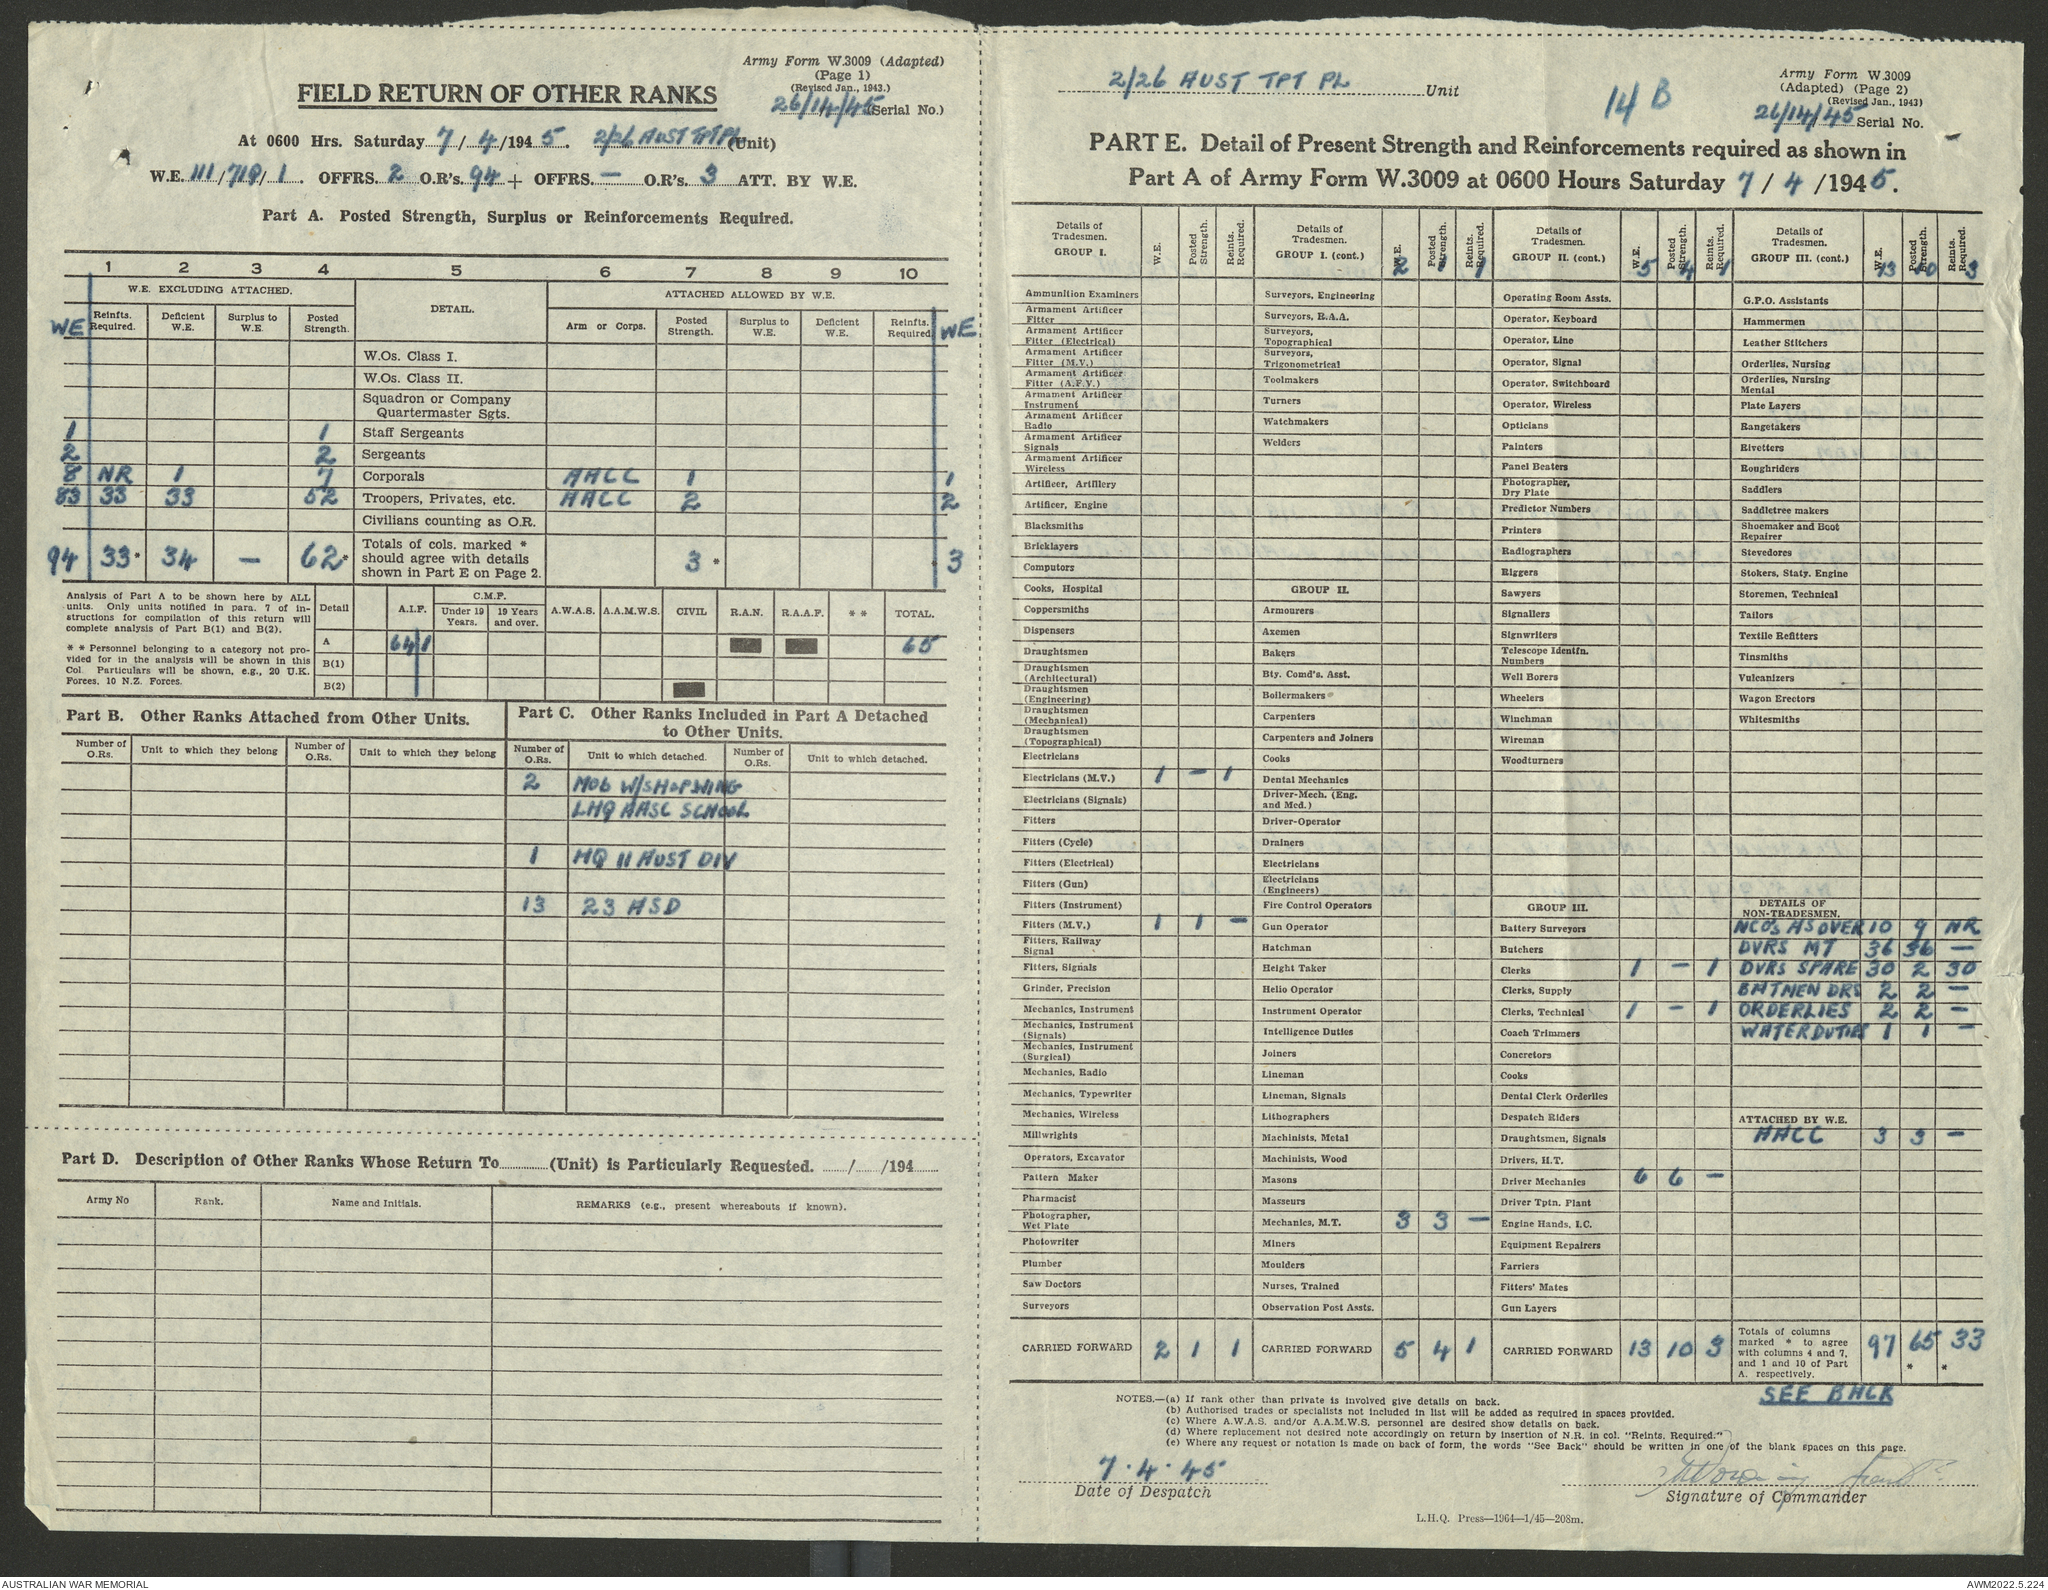 Army Form W.3009 (Adapted)
(Page 1)
(Revised Jan., 1943.)
FIELD RETURN OF OTHER RANKS
26/14/45 (Serial No.)
At 0600 Hrs. Saturday 7/4/1945. 2/26 AUST TPT PL (Unit)
W.E. 111/718/1. OFFRS. 2 O.R's. 94 + OFFRS. — O.R's. 3 ATT. BY W.E.
Part A. Posted Strength, Surplus or Reinforcements Required.
1 2 3 4 5 6 7 8 9 10
W.E. EXCLUDING ATTACHED. DETAIL. ATTACHED ALLOWED BY W.E.
WE Reinfts. Required. Deficient W.E. Surplus to W.E. Posted Strength. Arm or Corps. Posted Strength. Surplus to W.E. Deficient W.E. Reinfts. Required. WE
W.Os. Class I.
W.Os. Class II.
Squadron or Company
Quartermaster Sgts.
1 1 Staff Sergeants
2 2 Sergeants
8 NR 1 7 Corporals AACC 1 1
83 33 33 52 Troopers, Privates, etc. AACC 2 2
Civilians counting as O.R.
94 33* 34 — 62* Totals of cols. marked * should agree with details shown in Part E on Page 2. 3 * * 3
Analysis of Part A to be shown here by ALL
units. Only units notified in para. 7 of in-
structions for compilation of this return will
complete analysis of Part B(1) and B(2).
* * Personnel belonging to a category not pro-
vided for in the analysis will be shown in this
Col. Particulars will be shown, e.g., 20 U.K.
Forces, 10 N.Z. Forces.
Detail A.I.F. C.M.F. Under 19 Years. 19 Years and over. A.W.A.S. A.A.M.W.S. CIVIL R.A.N. R.A.A.F. * * TOTAL.
A 64 1 65
B(1)
B(2)
Part B. Other Ranks Attached from Other Units.
Number of O.Rs. Unit to which they belong Number of O.Rs. Unit to which they belong
Part C. Other Ranks Included in Part A Detached
to Other Units.
Number of O.Rs. Unit to which detached. Number of O.Rs. Unit to which detached.
2 MOB W/SHOP WING
LHQ AASC SCHOOL
1 HQ 11 AUST DIV
13 23 ASD
Part D. Description of Other Ranks Whose Return To (Unit) is Particularly Requested. / /194
Army No Rank. Name and Initials. REMARKS (e.g., present whereabouts if known).
2/26 AUST TPT PL Unit
14 B
Army Form W.3009
(Adapted) (Page 2)
(Revised Jan., 1943)
26/14/45 Serial No.
PART E. Detail of Present Strength and Reinforcements required as shown in
Part A of Army Form W.3009 at 0600 Hours Saturday 7/4/1945.
Details of Tradesmen. GROUP I. W.E. Posted Strength. Reints. Required.
Ammunition Examiners
Armament Artificer Fitter
Armament Artificer Fitter (Electrical)
Armament Artificer Fitter (M.V.)
Armament Artificer Fitter (A.F.V.)
Armament Artificer Instrument
Armament Artificer Radio
Armament Artificer Signals
Armament Artificer Wireless
Artificer, Artillery
Artificer, Engine
Blacksmiths
Bricklayers
Computors
Cooks, Hospital
Coppersmiths
Dispensers
Draughtsmen
Draughtsmen (Architectural)
Draughtsmen (Engineering)
Draughtsmen (Mechanical)
Draughtsmen (Topographical)
Electricians
Electricians (M.V.) 1 — 1
Electricians (Signals)
Fitters
Fitters (Cycle)
Fitters (Electrical)
Fitters (Gun)
Fitters (Instrument)
Fitters (M.V.) 1 1 —
Fitters, Railway Signal
Fitters, Signals
Grinder, Precision
Mechanics, Instrument
Mechanics, Instrument (Signals)
Mechanics, Instrument (Surgical)
Mechanics, Radio
Mechanics, Typewriter
Mechanics, Wireless
Millwrights
Operators, Excavator
Pattern Maker
Pharmacist
Photographer, Wet Plate
Photowriter
Plumber
Saw Doctors
Surveyors
CARRIED FORWARD 2 1 1
Details of Tradesmen. GROUP I. (cont.) W.E. Posted Strength. Reints. Required.
2 1 1
Surveyors, Engineering
Surveyors, R.A.A.
Surveyors, Topographical
Surveyors, Trigonometrical
Toolmakers
Turners
Watchmakers
Welders
GROUP II.
Armourers
Axemen
Bakers
Bty. Comd's. Asst.
Boilermakers
Carpenters
Carpenters and Joiners
Cooks
Dental Mechanics
Driver-Mech. (Eng. and Med.)
Driver-Operator
Drainers
Electricians
Electricians (Engineers)
Fire Control Operators
Gun Operator
Hatchman
Height Taker
Helio Operator
Instrument Operator
Intelligence Duties
Joiners
Lineman
Lineman, Signals
Lithographers
Machinists, Metal
Machinists, Wood
Masons
Masseurs
Mechanics, M.T. 3 3 —
Miners
Moulders
Nurses, Trained
Observation Post Assts.
CARRIED FORWARD 5 4 1
Details of Tradesmen. GROUP II. (cont.) W.E. Posted Strength. Reints. Required.
5 4 1
Operating Room Assts.
Operator, Keyboard
Operator, Line
Operator, Signal
Operator, Switchboard
Operator, Wireless
Opticians
Painters
Panel Beaters
Photographer, Dry Plate
Predictor Numbers
Printers
Radiographers
Riggers
Sawyers
Signallers
Signwriters
Telescope Identfn. Numbers
Well Borers
Wheelers
Winchman
Wireman
Woodturners
GROUP III.
Battery Surveyors
Butchers
Clerks 1 — 1
Clerks, Supply
Clerks, Technical 1 — 1
Coach Trimmers
Concretors
Cooks
Dental Clerk Orderlies
Despatch Riders
Draughtsmen, Signals
Drivers, H.T.
Driver Mechanics 6 6 —
Driver Tptn. Plant
Engine Hands, I.C.
Equipment Repairers
Farriers
Fitters' Mates
Gun Layers
CARRIED FORWARD 13 10 3
Details of Tradesmen. GROUP III. (cont.) W.E. Posted Strength. Reints. Required.
13 10 3
G.P.O. Assistants
Hammermen
Leather Stitchers
Orderlies, Nursing
Orderlies, Nursing Mental
Plate Layers
Rangetakers
Rivetters
Roughriders
Saddlers
Saddletree makers
Shoemaker and Boot Repairer
Stevedores
Stokers, Staty. Engine
Storemen, Technical
Tailors
Textile Refitters
Tinsmiths
Vulcanizers
Wagon Erectors
Whitesmiths
DETAILS OF NON-TRADESMEN.
NCOs AS OVER 10 9 NR
DVRS MT 36 36 —
DVRS SPARE 30 2 30
BATMEN DRS 2 2 —
ORDERLIES 2 2 —
WATER DUTIES 1 1 —
ATTACHED BY W.E.
AACC 3 3 —
Totals of columns marked * to agree with columns 4 and 7, and 1 and 10 of Part A. respectively. 97 65 * 33 *
SEE BACK
NOTES.—(a) If rank other than private is involved give details on back.
(b) Authorised trades or specialists not included in list will be added as required in spaces provided.
(c) Where A.W.A.S. and/or A.A.M.W.S. personnel are desired show details on back.
(d) Where replacement not desired note accordingly on return by insertion of N.R. in col. "Reints. Required."
(e) Where any request or notation is made on back of form, the words "See Back" should be written in one of the blank spaces on this page.
7.4.45
Date of Despatch
Signature of Commander
L.H.Q. Press—1964—1/45—208m.
AUSTRALIAN WAR MEMORIAL
AWM2022.5.224